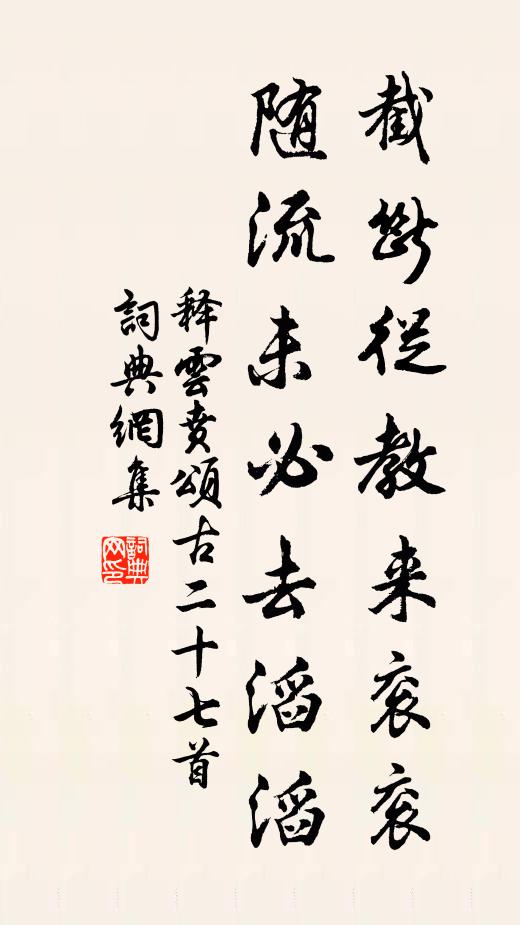 截斷従教来衮衮
随流未必去滔滔
释雲贲頌古二十七首
詞典網集
詞典网印